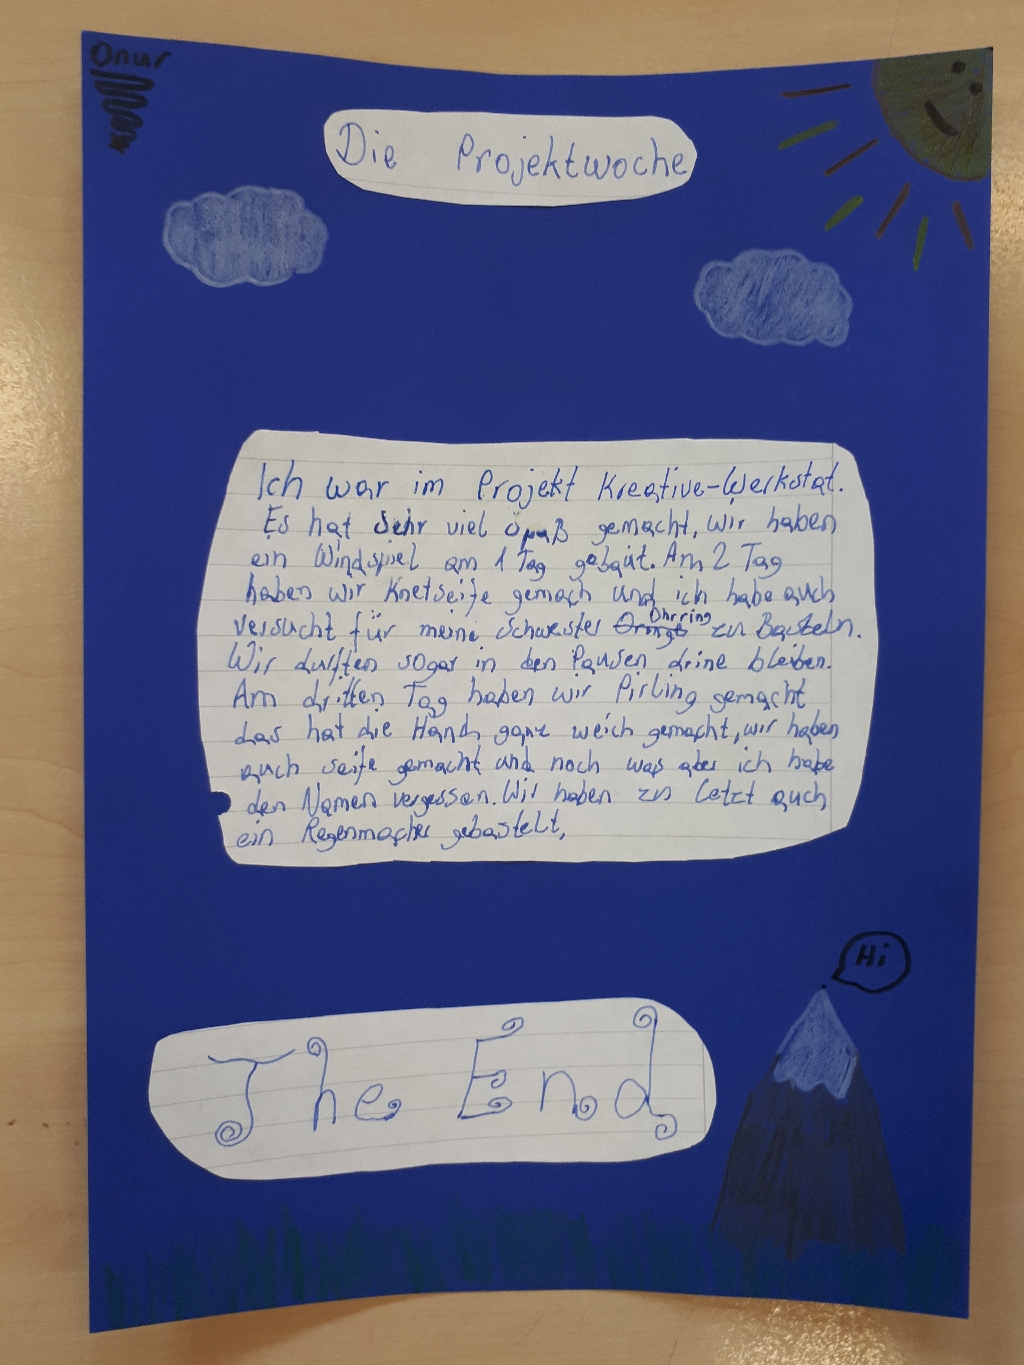 Onur
Die Projektwoche
Ich war im Projekt Kreative-Werkstat.
Es hat Sehr viel Spaß gemacht, wir haben
ein Windspiel am 1 Tag gebaut. Am 2 Tag
haben wir Knetseife gemach und ich habe auch
versucht für meine Schwester Ohrring zu Basteln.
Wir durften sogar in den Pausen drine bleiben.
Am dritten Tag haben wir Pirling gemacht
das hat die Hand ganz weich gemacht, wir haben
auch seife gemacht und noch was aber ich habe
den Namen vergessen. Wir haben zu letzt auch
ein Regenmacher gebastelt,
Hi
The End